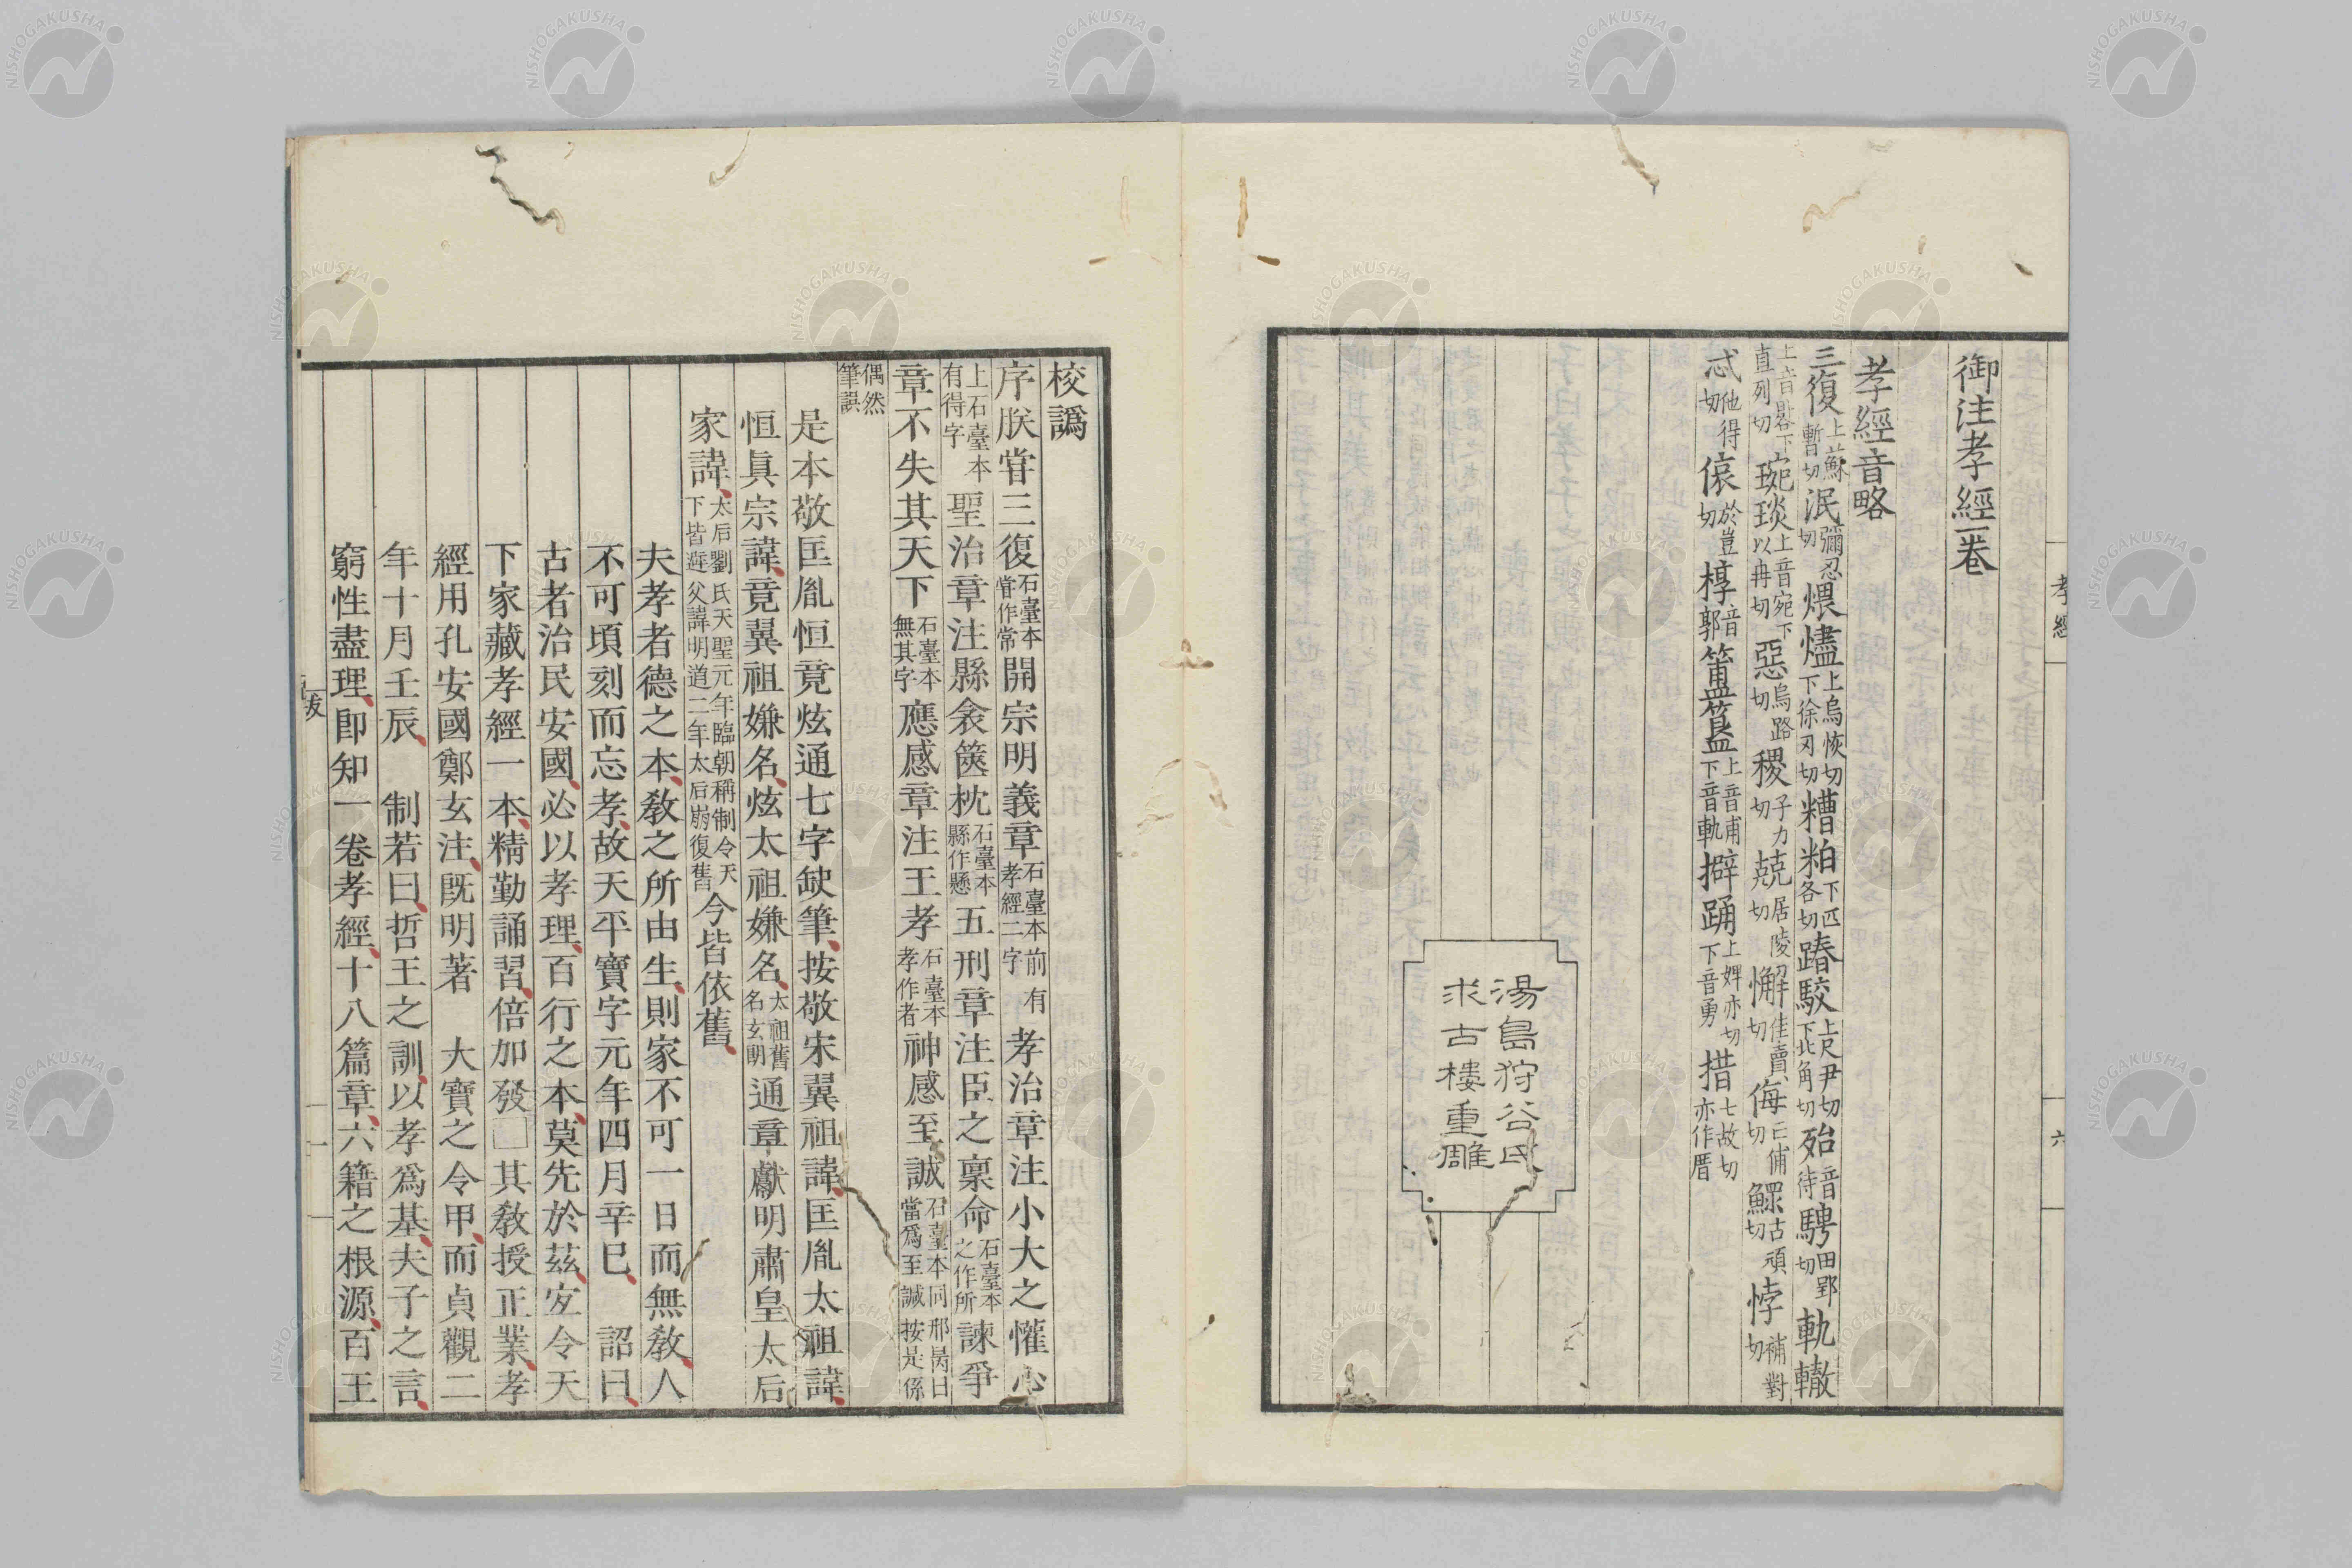 御注孝經一卷
孝經音略
三復上蘇暫切泯彌忍切煨燼上烏恢切下徐刃切糟粕下匹各切踳駮上尺尹切下北角切殆音待騁田郢切軌轍
上音晷下直列切琬琰上音宛下以冉切惡烏路切稷子力切兢居陵切懈佳賣切侮亡甫切鰥古頑切悖補對切
忒他得切偯於豈切椁音郭簠簋上音甫下音軌擗踊上婢亦切下音勇措七故切亦作厝
湯島狩谷氏
求古樓重雕
孝經
六
校譌
序朕甞三復石臺本甞作常開宗明義章石臺本前有孝經二字孝治章注小大之懽心
上石臺本有得字聖治章注縣衾篋枕石臺本縣作懸五刑章注臣之稟命石臺本之作所諫爭
章不失其天下石臺本無其字應感章注王孝石臺本孝作者神感至諴石臺本同邢昺曰當爲至諴按是係
偶然筆誤
是本敬匡胤恒竟炫通七字缺筆按敬宋翼祖諱匡胤太祖諱
恒眞宗諱竟翼祖嫌名炫太祖嫌名太祖舊名玄朗通章獻明肅皇太后
家諱太后劉氏天聖元年臨朝稱制令天下皆避父諱明道二年太后崩復舊今皆依舊
夫孝者德之本敎之所由生則家不可一日而無敎人
不可頃刻而忘孝故天平寶字元年四月辛巳 詔曰
古者治民安國必以孝理百行之本莫先於茲宜令天
下家藏孝經一本精勤誦習倍加發□其敎授正業孝
經用孔安國鄭玄注旣明著 大寶之令甲而貞觀二
年十月壬辰 制若曰哲王之訓以孝爲基夫子之言
窮性盡理卽知一卷孝經十八篇章六籍之根源百王
跋
一